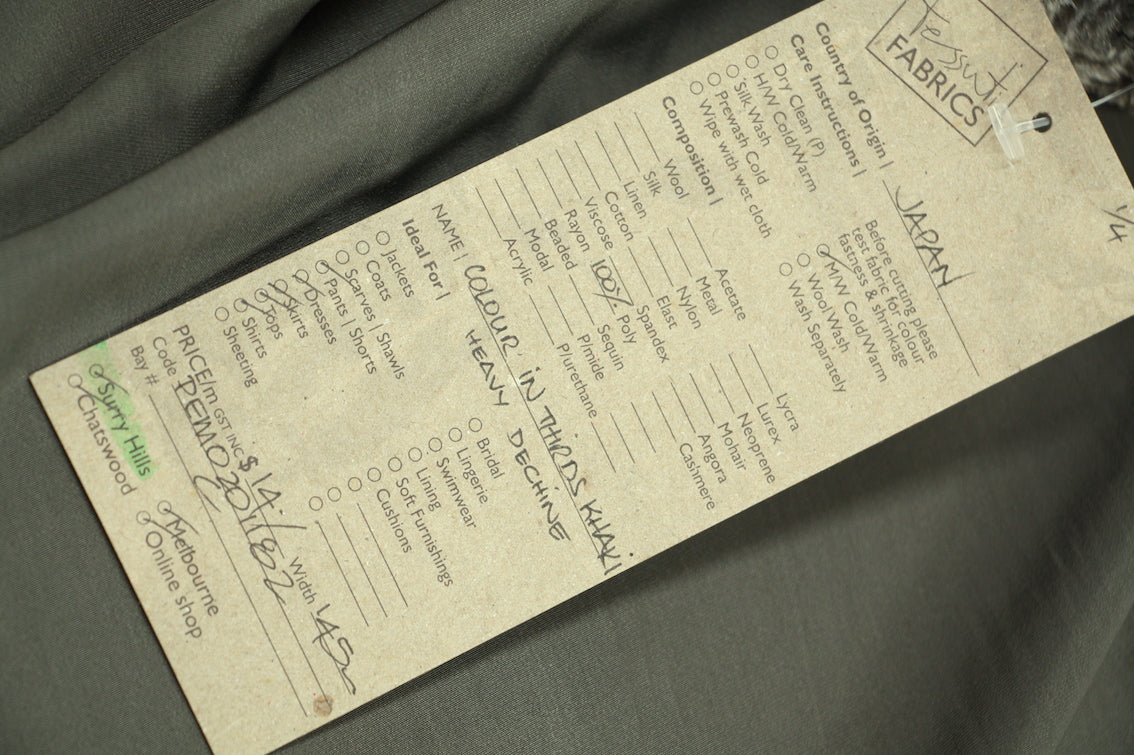 Tessuti
FABRICS
1/4
Country of Origin | JAPAN
Care Instructions |
Dry Clean (P)
H/W Cold/Warm
'Silk Wash
Prewash Cold
Wipe with wet cloth
Before cutting please
test fabric for colour
fastness & shrinkage
M/W Cold/Warm
Wool Wash
Wash Separately
Composition |
Wool
Silk
Linen
Cotton
Viscose
Rayon
Beaded
Modal
Acrylic
Acetate
Metal
Nylon
Elast
Spandex
100% Poly
Sequin
P/mide
P/urethane
Lycra
Lurex
Neoprene
Mohair
Angora
Cashmere
NAME | COLOUR IN THIRDS KHAKI
HEAVY DECHINE
Ideal For |
Jackets
Coats
Scarves | Shawls
Pants | Shorts
Dresses
Skirts
Tops
Shirts
Sheeting
Bridal
Lingerie
Swimwear
Lining
Soft Furnishings
Cushions
PRICE/m GST INC $14/ Width 145
Code
Bay #
Surry Hills
Chatswood
Melbourne
Online shop